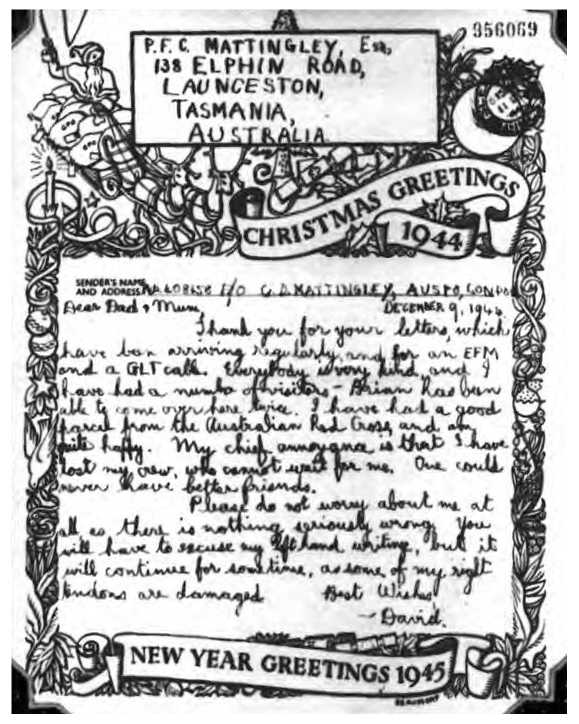 956069
P.F.C. MATTINGLEY, Esq,
138 ELPHIN ROAD,
LAUNCESTON,
TASMANIA,
AUSTRALIA
CHRISTMAS GREETINGS
1944
SENDER'S NAME
AND ADDRESS F/O G.D. MATTINGLEY, AUSPO, LONDON
DECEMBER 9, 1944
Dear Dad & Mum,
Thank you for your letters, which
have been arriving regularly, and for an EFM
and a GLT call. Everybody is very kind, and I
have had a number of visitors – Brian has been
able to come over here twice. I have had a good
parcel from the Australian Red Cross, and am
quite happy. My chief annoyance is that I have
lost my crew, who cannot wait for me. One could
never have better friends.
Please do not worry about me at
all as there is nothing seriously wrong. You
will have to excuse my left hand writing, but it
will continue for sometime, as some of my right
tendons are damaged Best Wishes
– David.
NEW YEAR GREETINGS 1945